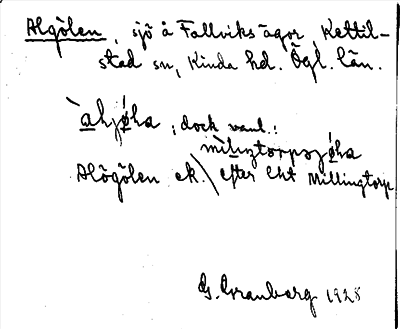 Algölen, sjö å Fallviks ägor, Kettil-
stad sn, Kinda hd. Ögl. län.
àhjøha ; dock vanl.:
milingtorpsjøha
Alögölen ek. efter Ekt Millingtorp
G. Granberg 1928